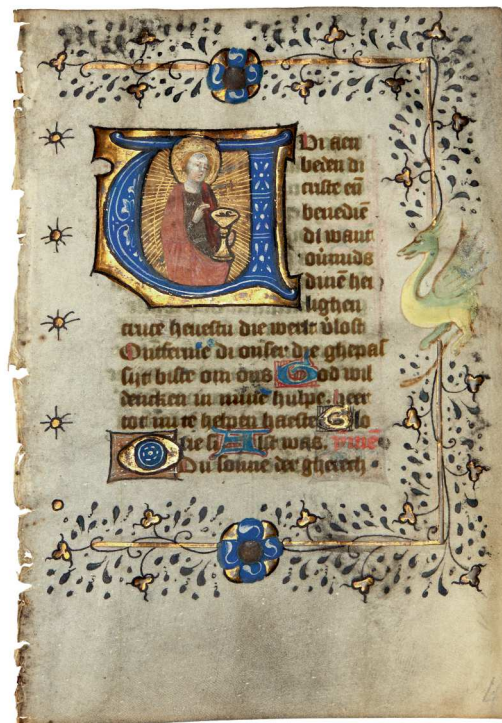 Wi aen
beden di
criste eñ
benediē
di want
ōmids
dinē hei
lighen
cruce heuestu die werlt v̄lost
Ontferme di onser die ghepas
sijt biste om ons God wil
dencken in mine hulpe heer
tot mi te helpen haeste Glo
rie si Alst was. ymē
O Du sonne der gherech